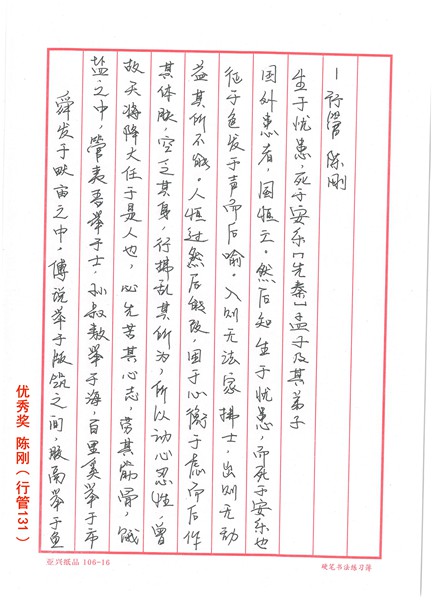 舜发于畎亩之中，傅说举于版筑之间，胶鬲举于鱼
盐之中，管夷吾举于士，孙叔敖举于海，百里奚举于市
故天将降大任于是人也，必先苦其心志，劳其筋骨，饿
其体肤，空乏其身，行拂乱其所为，所以动心忍性，曾
益其所不能。人恒过然后能改，困于心衡于虑而后作
征于色发于声而后喻。入则无法家拂士，出则无敌
国外患者，国恒亡。然后知生于忧患，而死于安乐也
生于忧患，死于安乐【先秦】孟子及其弟子
一行管 陈刚
优秀奖 陈刚（行管131）
亚兴纸品 106-16
硬笔书法练习簿